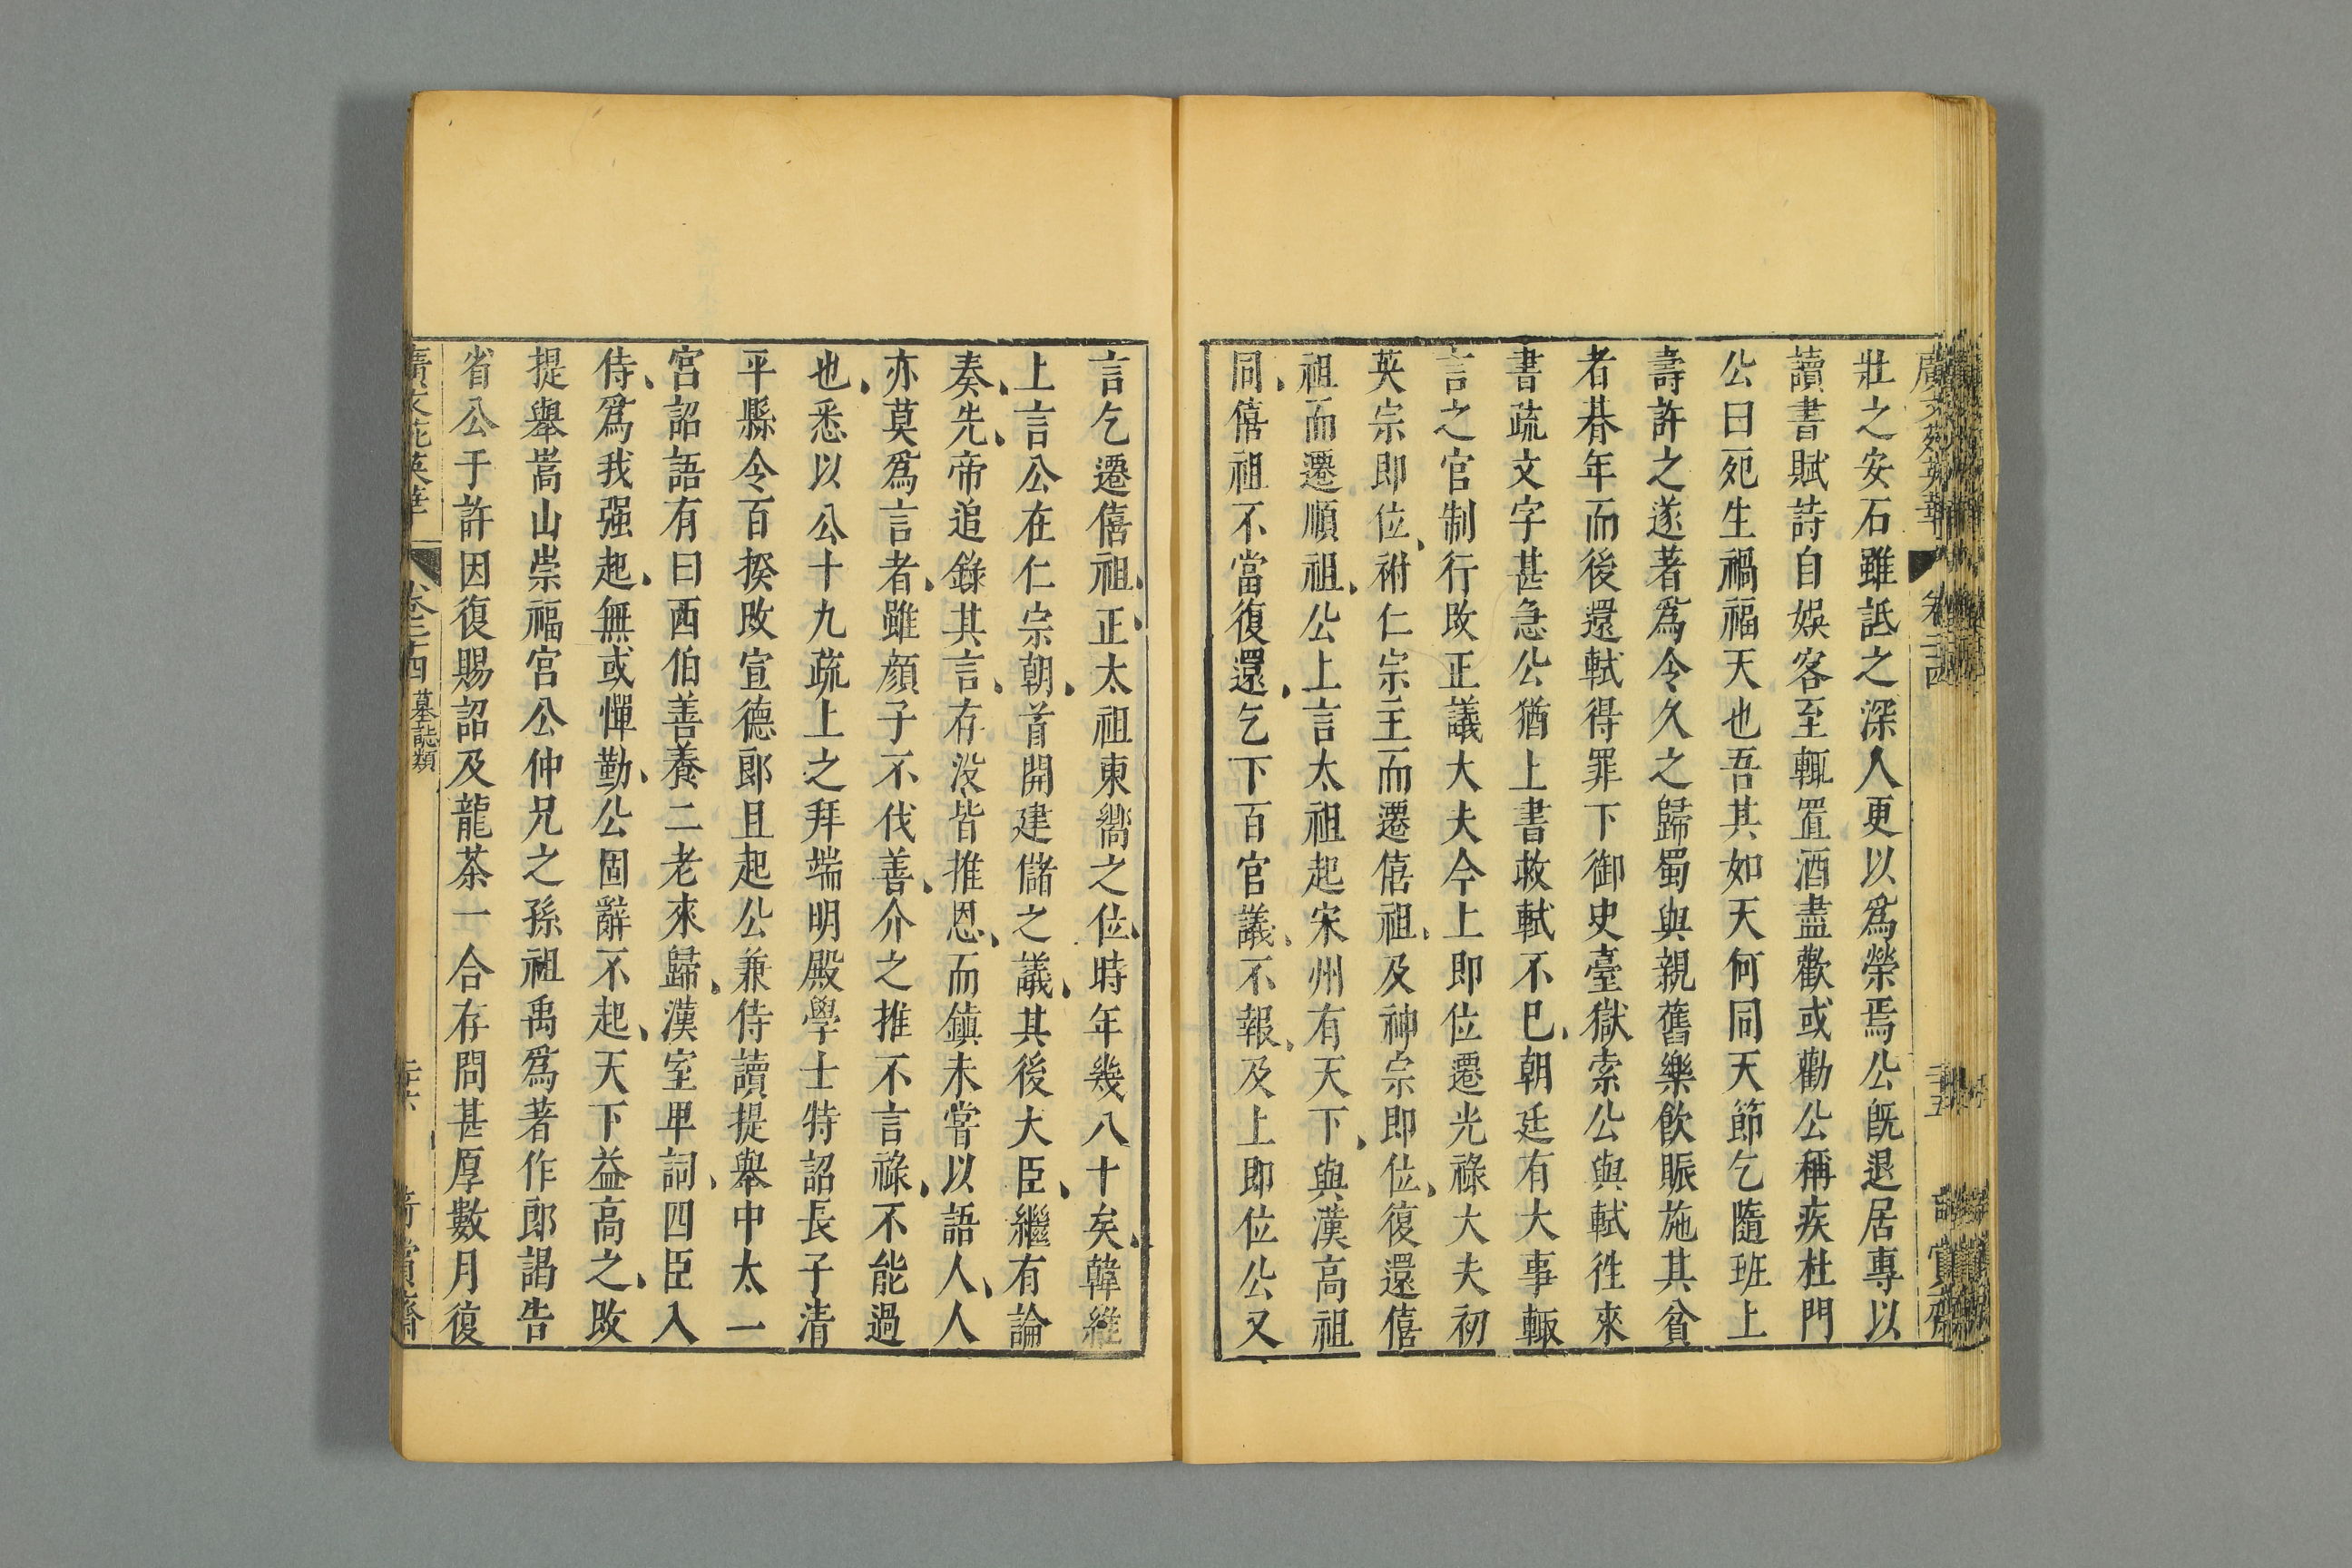 壯之安石雖詆之深人更以爲榮焉公既退居專以
讀書賦詩自娛客至輒置酒盡歡或勸公稱疾杜門
公曰死生禍福天也吾其如天何同天節乞隨班上
壽許之遂著爲令久之歸蜀與親舊樂飲賑施其貧
者朞年而後還軾得罪下御史臺獄索公與軾徃來
書疏文字甚急公猶上書救軾不已朝廷有大事輙
言之官制行改正議大夫今上即位遷光祿大夫初
英宗即位祔仁宗主而遷僖祖及神宗即位復還僖
祖而遷順祖公上言太祖起宋州有天下與漢高祖
同僖祖不當復還乞下百官議不報及上即位公又
言乞遷僖祖正太祖東嚮之位時年幾八十矣韓維
上言公在仁宗朝首開建儲之議其後大臣繼有論
奏先帝追錄其言存没皆推恩而鎮未嘗以語人人
亦莫爲言者雖顔子不伐善介之推不言祿不能過
也悉以公十九疏上之拜端明殿學士特詔長子清
平縣令百揆改宣德郎且起公兼侍讀提舉中太一
宮詔語有曰西伯善養二老來歸漢室卑詞四臣入
侍爲我强起無或憚勤公固辭不起天下益高之改
提舉嵩山崇福宮公仲兄之孫祖禹爲著作郎謁告
省公于許因復賜詔及龍茶一合存問甚厚數月復
廣文苑英華 卷二十四 墓誌類 二十六